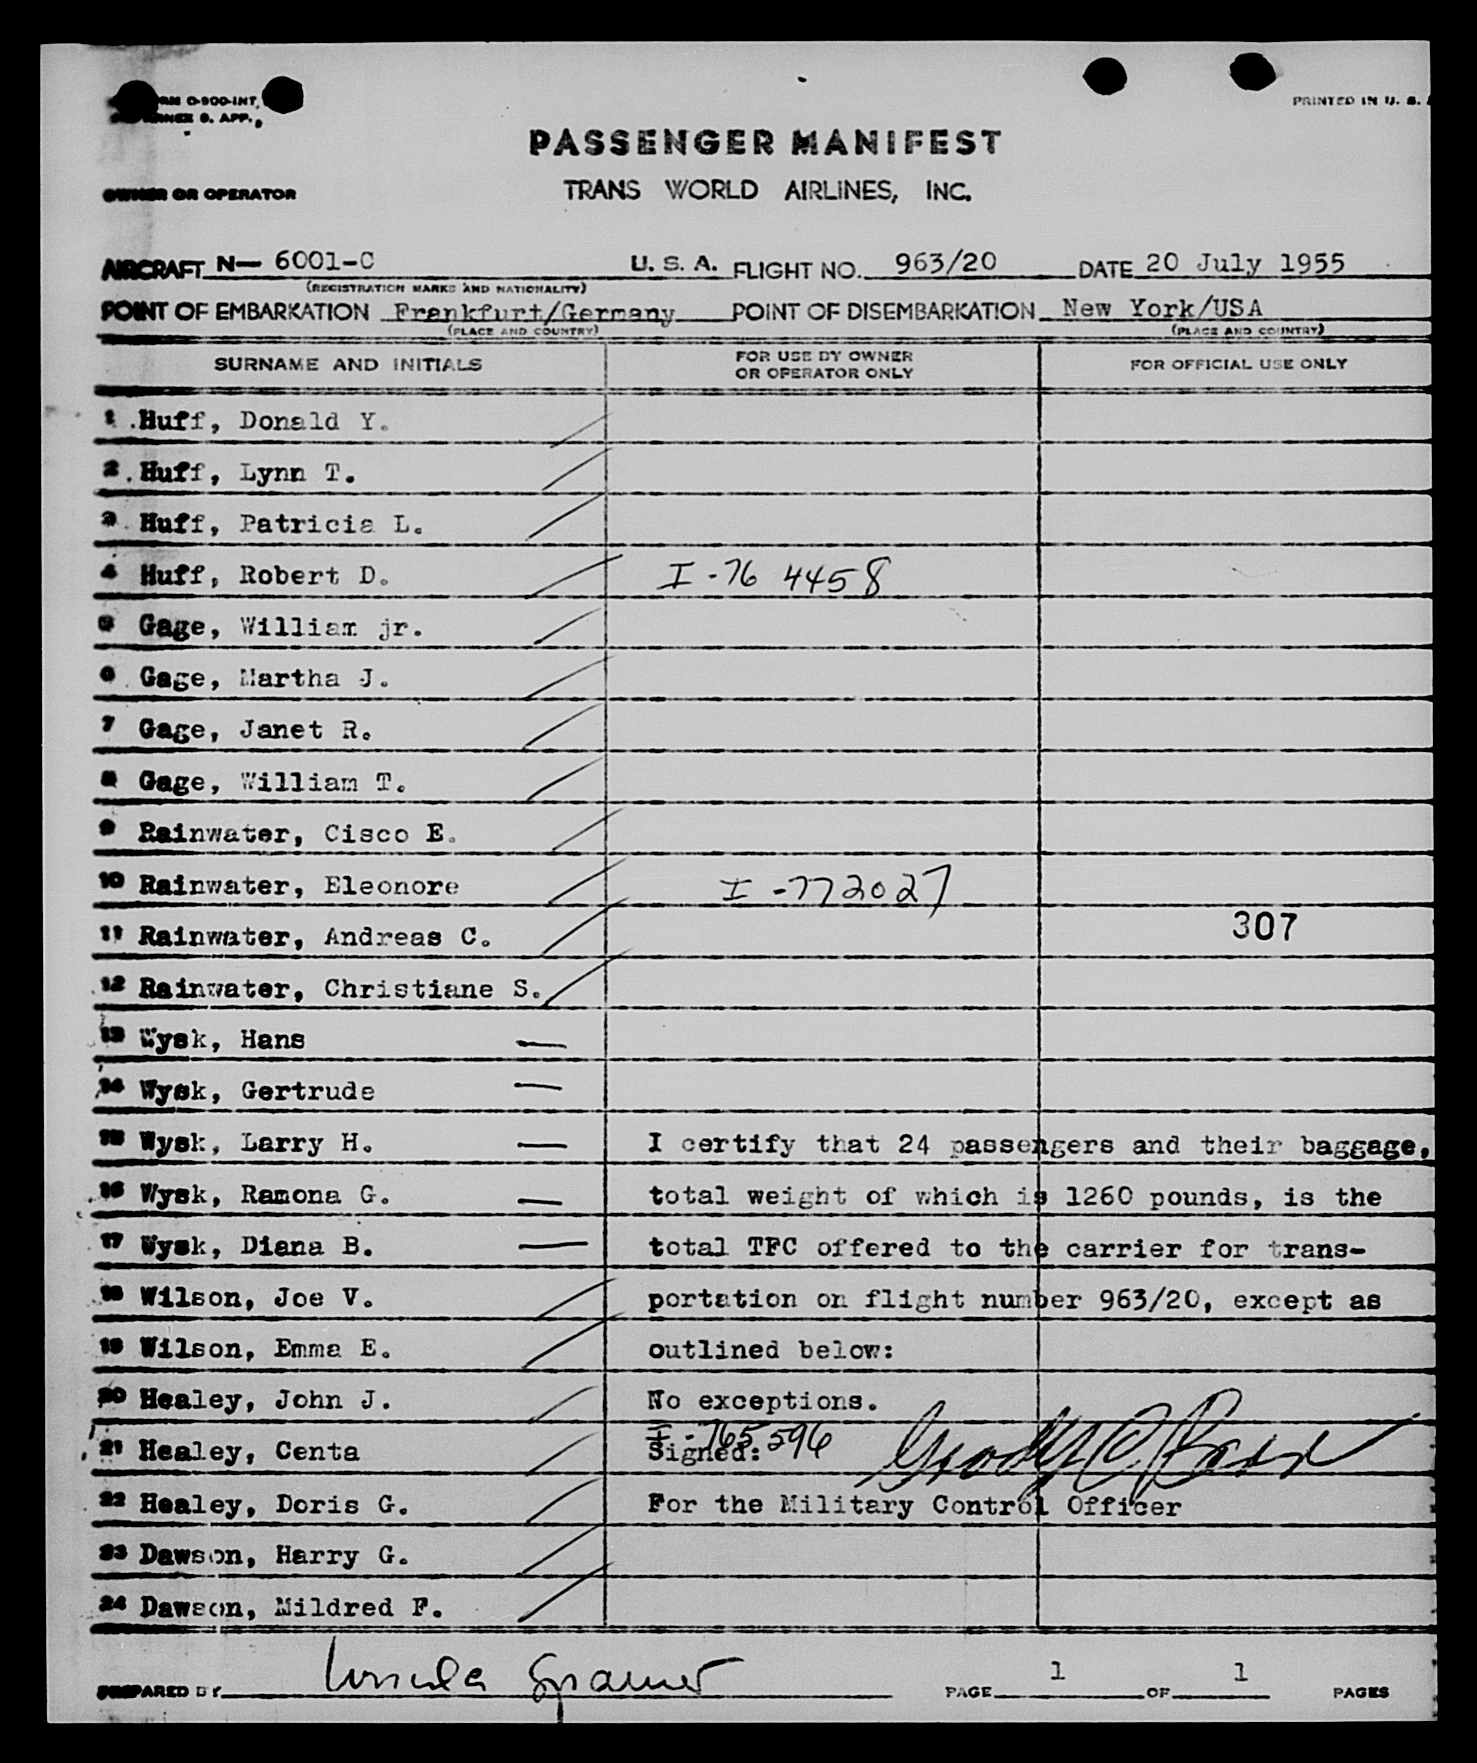 RM O-900-INT.
ANNEX 9. APP.
PRINTED IN U. S.
PASSENGER MANIFEST
OWNER OR OPERATOR
TRANS WORLD AIRLINES, INC.
AIRCRAFT N— 6001-C U. S. A. FLIGHT NO. 963/20 DATE 20 July 1955
(REGISTRATION MARKS AND NATIONALITY)
POINT OF EMBARKATION Frankfurt/Germany POINT OF DISEMBARKATION New York/USA
(PLACE AND COUNTRY) (PLACE AND COUNTRY)
SURNAME AND INITIALS FOR USE BY OWNER OR OPERATOR ONLY FOR OFFICIAL USE ONLY
1 Huff, Donald Y.
2 Huff, Lynn T.
3 Huff, Patricia L.
4 Huff, Robert D. I-76 4458
5 Gage, William jr.
6 Gage, Martha J.
7 Gage, Janet R.
8 Gage, William T.
9 Rainwater, Cisco E.
10 Rainwater, Eleonore I-772027
11 Rainwater, Andreas C. 307
12 Rainwater, Christiane S.
13 Wysk, Hans
14 Wysk, Gertrude
15 Wysk, Larry H. I certify that 24 passengers and their baggage,
16 Wysk, Ramona G. total weight of which is 1260 pounds, is the
17 Wysk, Diana B. total TFC offered to the carrier for trans-
18 Wilson, Joe V. portation on flight number 963/20, except as
19 Wilson, Emma E. outlined below:
20 Healey, John J. No exceptions.
I-765596
21 Healey, Centa Signed:
22 Healey, Doris G. For the Military Control Officer
23 Dawson, Harry G.
24 Dawson, Mildred F.
PREPARED BY Ursula PAGE 1 OF 1 PAGES